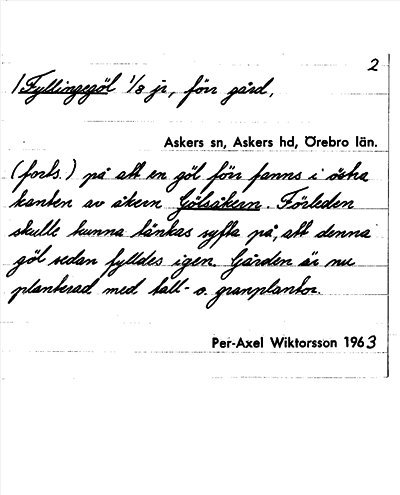 2
/Fyllingegöl 1/8 jr, förr gård,
Askers sn, Askers hd, Örebro län.
(forts.) på att en göl förr fanns i östra
kanten av åkern Gölsåkern. Förleden
skulle kunna tänkas syfta på, att denna
göl sedan fylldes igen. Gården är nu
planterad med tall- o. granplantor.
Per-Axel Wiktorsson 1963